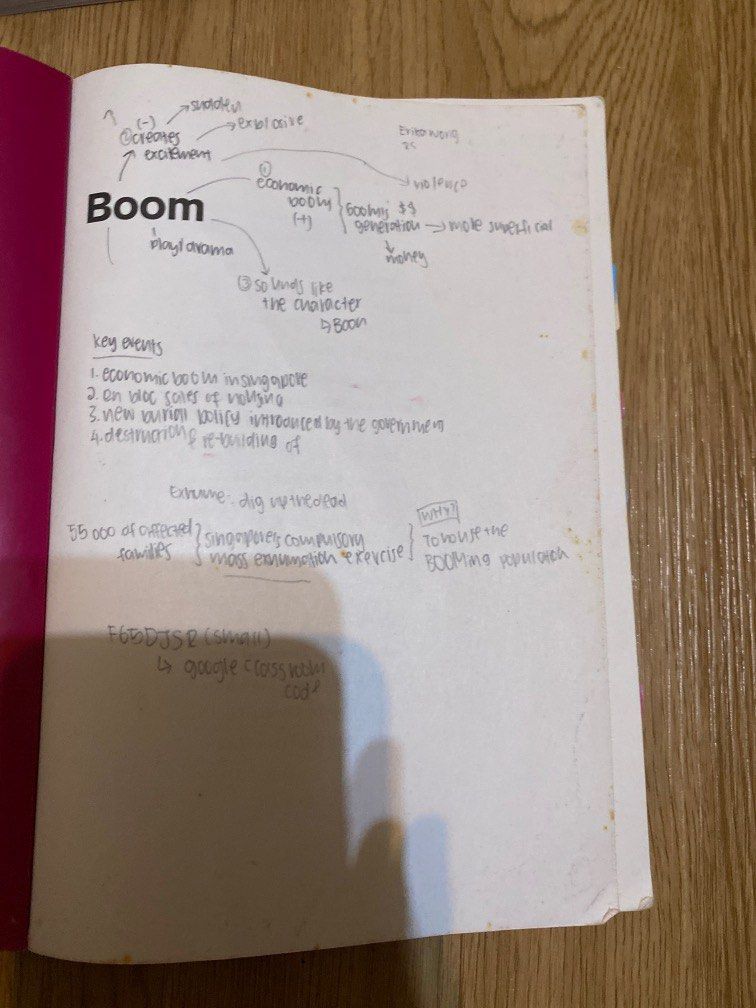 (-) → sudden
② creates → explosive
excitement → violence
Erika Wong
2S
Boom
① economic
boom
(+)
booming $$
generation → more superficial
↓
money
play/drama
③ sounds like
the character
↳ Boon
key events
1. economic boom in singapore
2. en bloc sales of housing
3. new burial policy introduced by the government
4. destruction & re-building of
Exhume: dig up the dead
55 000 of affected
families
singapore's compulsory
mass exhumation exercise
WHY?
To house the
BOOMing population
F65DJSR (small)
↳ google classroom
code